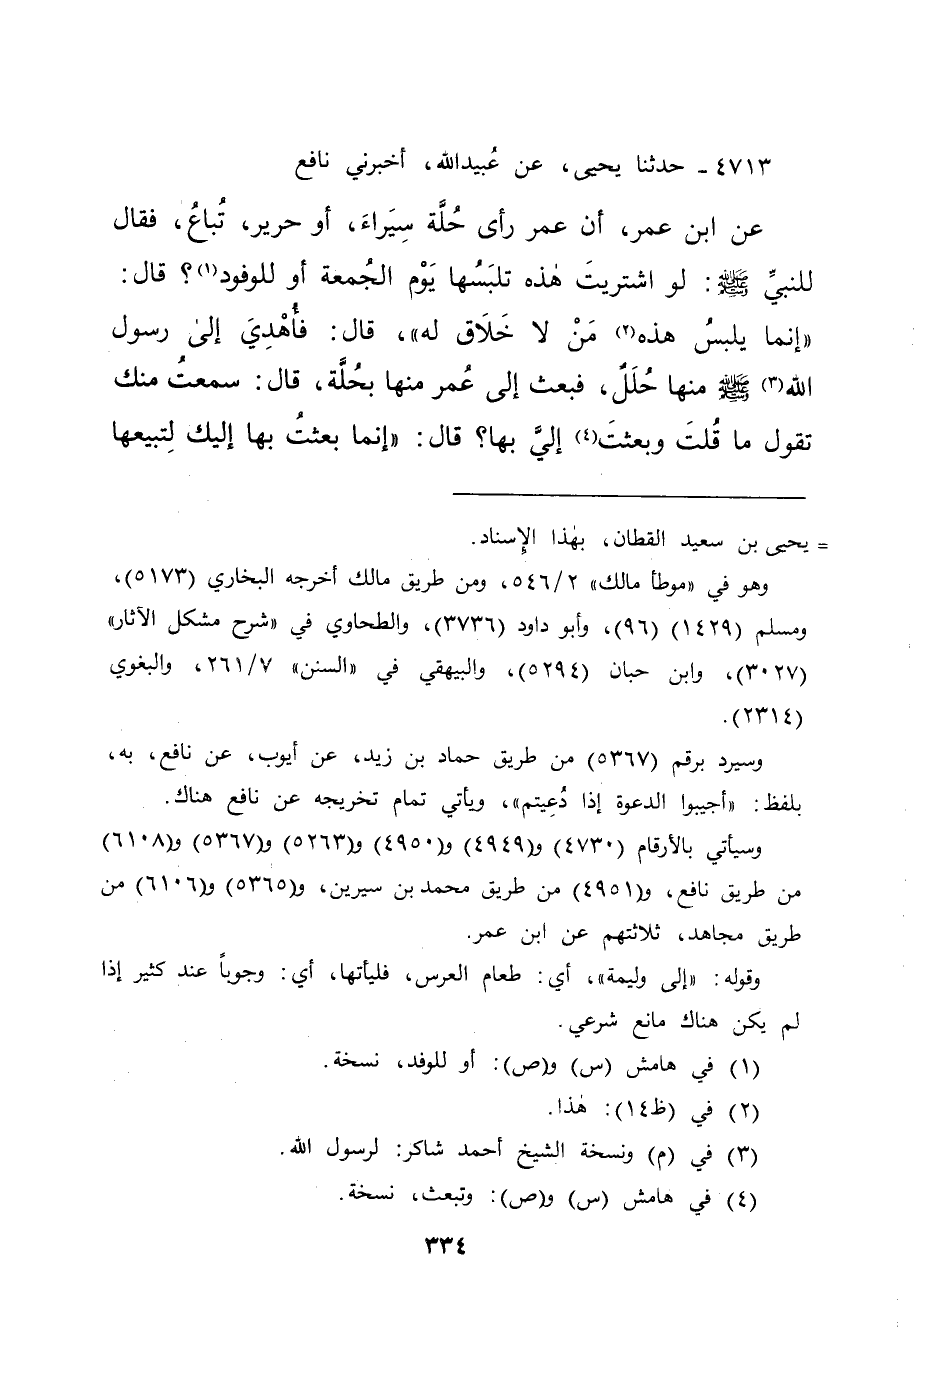 ٤٧١٣ - حدثنا يحيى، عن عُبيدالله، أخبرني نافع
عن ابن عمر، أن عمر رأى حُلَّة سِيَراءَ، أو حرير، تُباعُ، فقال
للنبيِّ ﷺ: لو اشتريتَ هٰذه تلبَسُها يَوْم الجُمعة أو للوفود(١)؟ قال:
«إنما يلبسُ هذه(٢) مَنْ لا خَلَاق له»، قال: فأُهْدِيَ إلىٰ رسول
الله(٣) ﷺ منها حُلَلٌ، فبعث إلى عُمر منها بحُلَّة، قال: سمعتُ منك
تقول ما قُلتَ وبعثتَ(٤) إليَّ بها؟ قال: «إنما بعثتُ بها إليك لِتبيعها
= يحيى بن سعيد القطان، بهٰذا الإسناد.
وهو في «موطأ مالك» ٥٤٦/٢، ومن طريق مالك أخرجه البخاري (٥١٧٣)،
ومسلم (١٤٢٩) (٩٦)، وأبو داود (٣٧٣٦)، والطحاوي في «شرح مشكل الآثار»
(٣٠٢٧)، وابن حبان (٥٢٩٤)، والبيهقي في «السنن» ٢٦١/٧، والبغوي
(٢٣١٤).
وسيرد برقم (٥٣٦٧) من طريق حماد بن زيد، عن أيوب، عن نافع، به،
بلفظ: «أجيبوا الدعوة إذا دُعِيتم»، ويأتي تمام تخريجه عن نافع هناك.
وسيأتي بالأرقام (٤٧٣٠) و(٤٩٤٩) و(٤٩٥٠) و(٥٢٦٣) و(٥٣٦٧) و(٦١٠٨)
من طريق نافع، و(٤٩٥١) من طريق محمد بن سيرين، و(٥٣٦٥) و(٦١٠٦) من
طريق مجاهد، ثلاثتهم عن ابن عمر.
وقوله: «إلى وليمة»، أي: طعام العرس، فليأتها، أي: وجوباً عند كثير إذا
لم يكن هناك مانع شرعي.
(١) في هامش (س) و(ص): أو للوفد، نسخة.
(٢) في (ظ١٤): هٰذا.
(٣) في (م) ونسخة الشيخ أحمد شاكر: لرسول الله.
(٤) في هامش (س) و(ص): وتبعث، نسخة.
٣٣٤